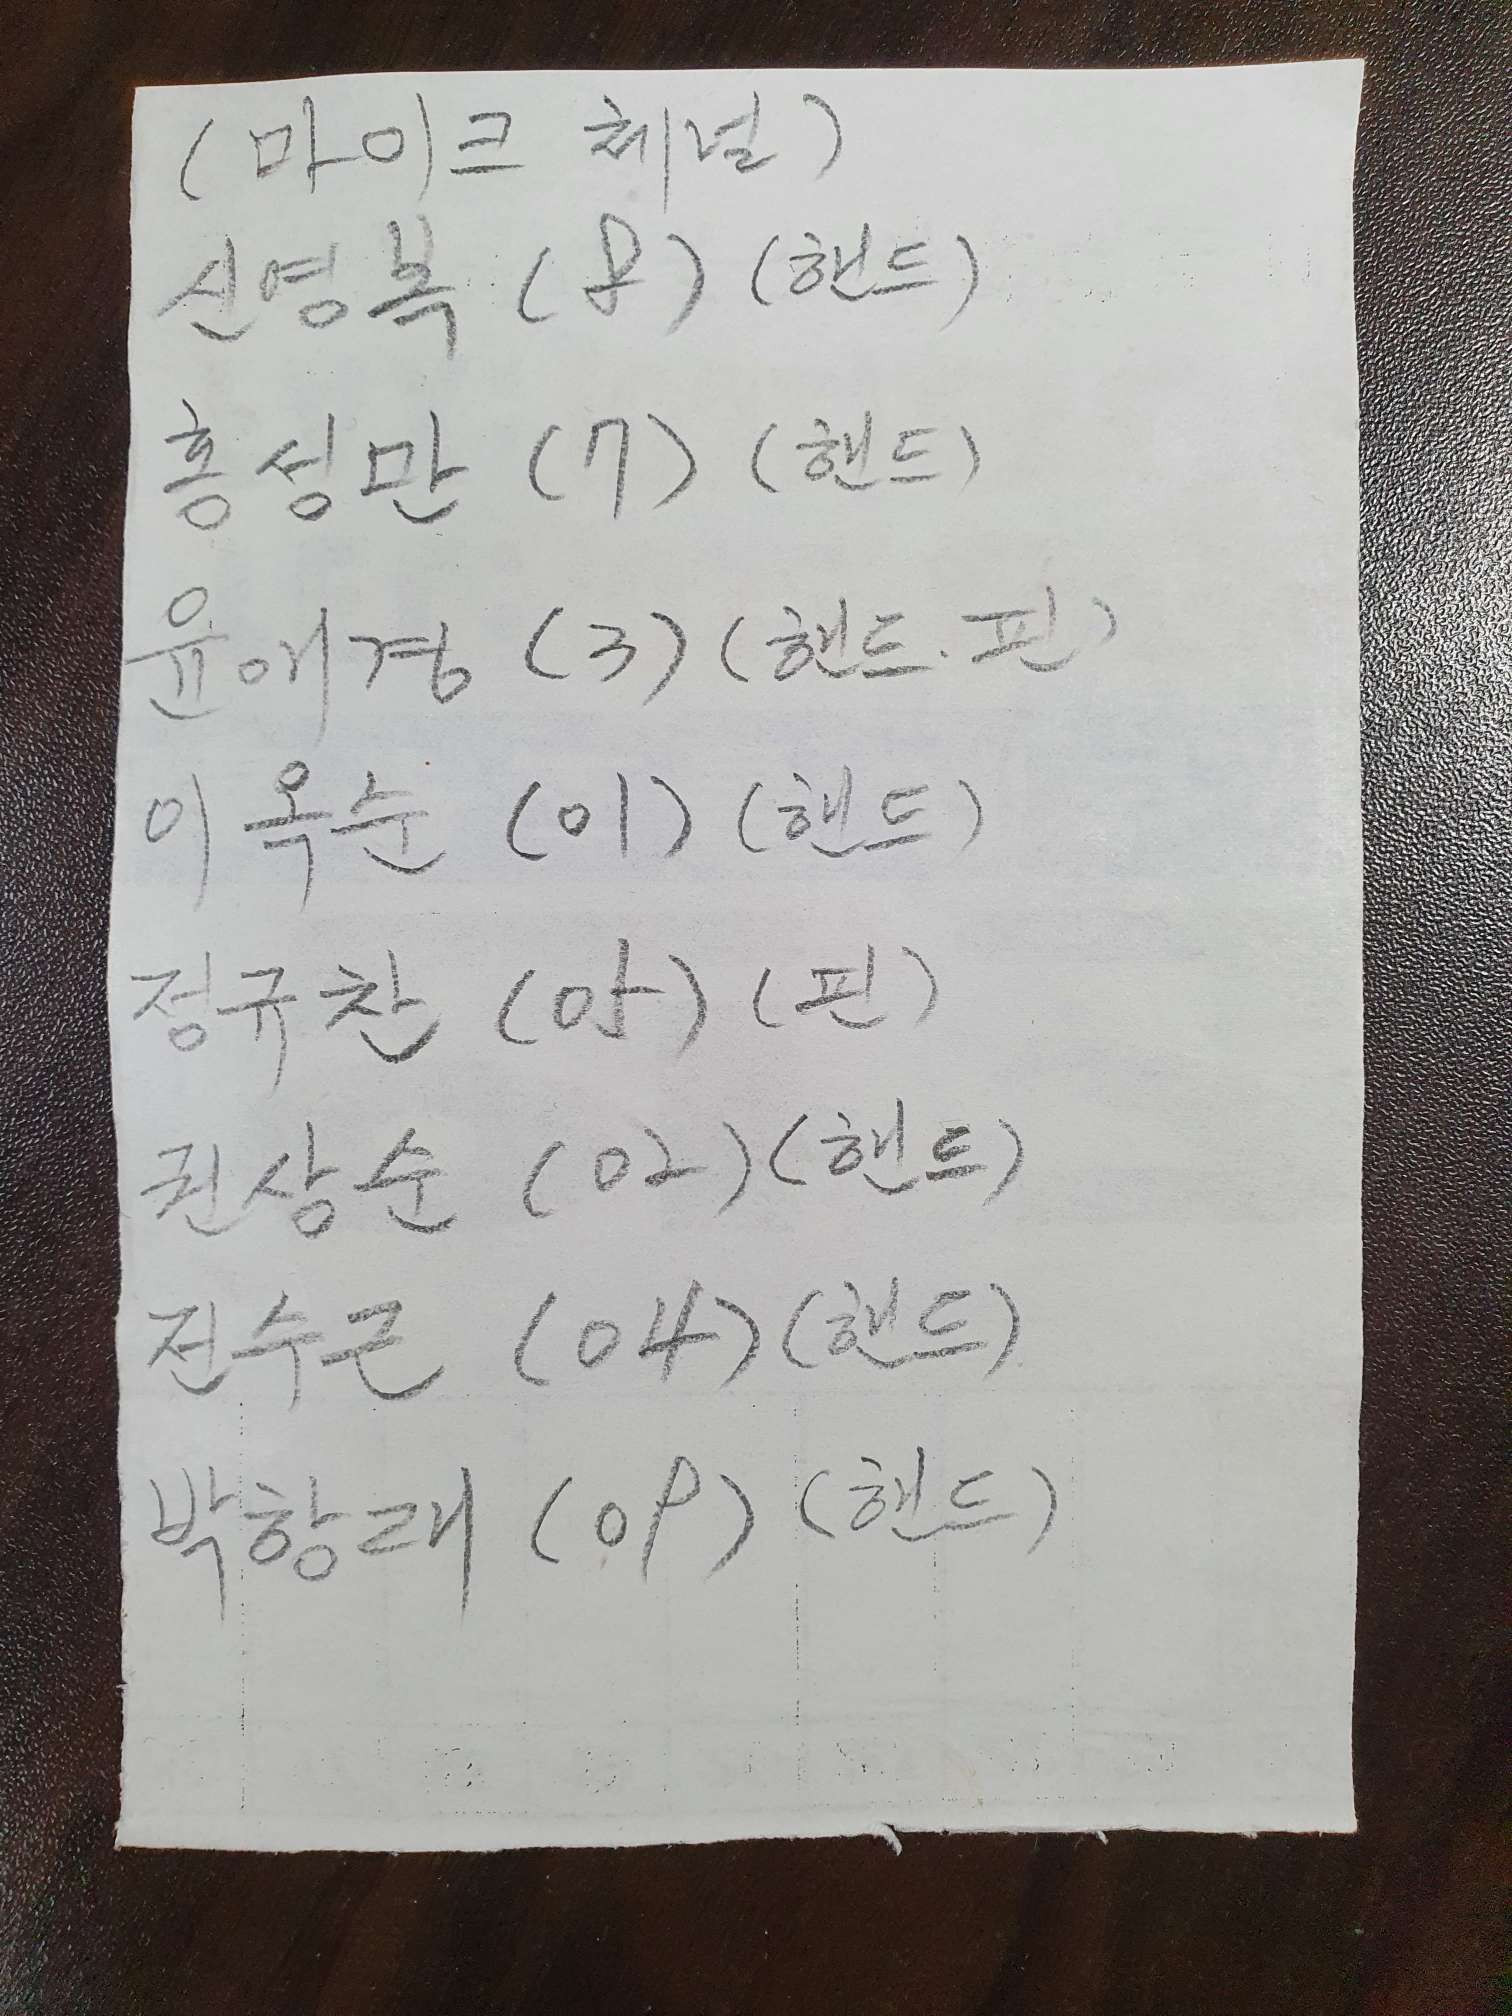 (마이크 체널)
신영복 (8) (핸드)
홍성만 (7) (핸드)
윤애경 (3) (핸드.핀)
이옥순 (01) (핸드)
정규찬 (05) (핀)
권상순 (02) (핸드)
전수근 (04) (핸드)
박항래 (09) (핸드)